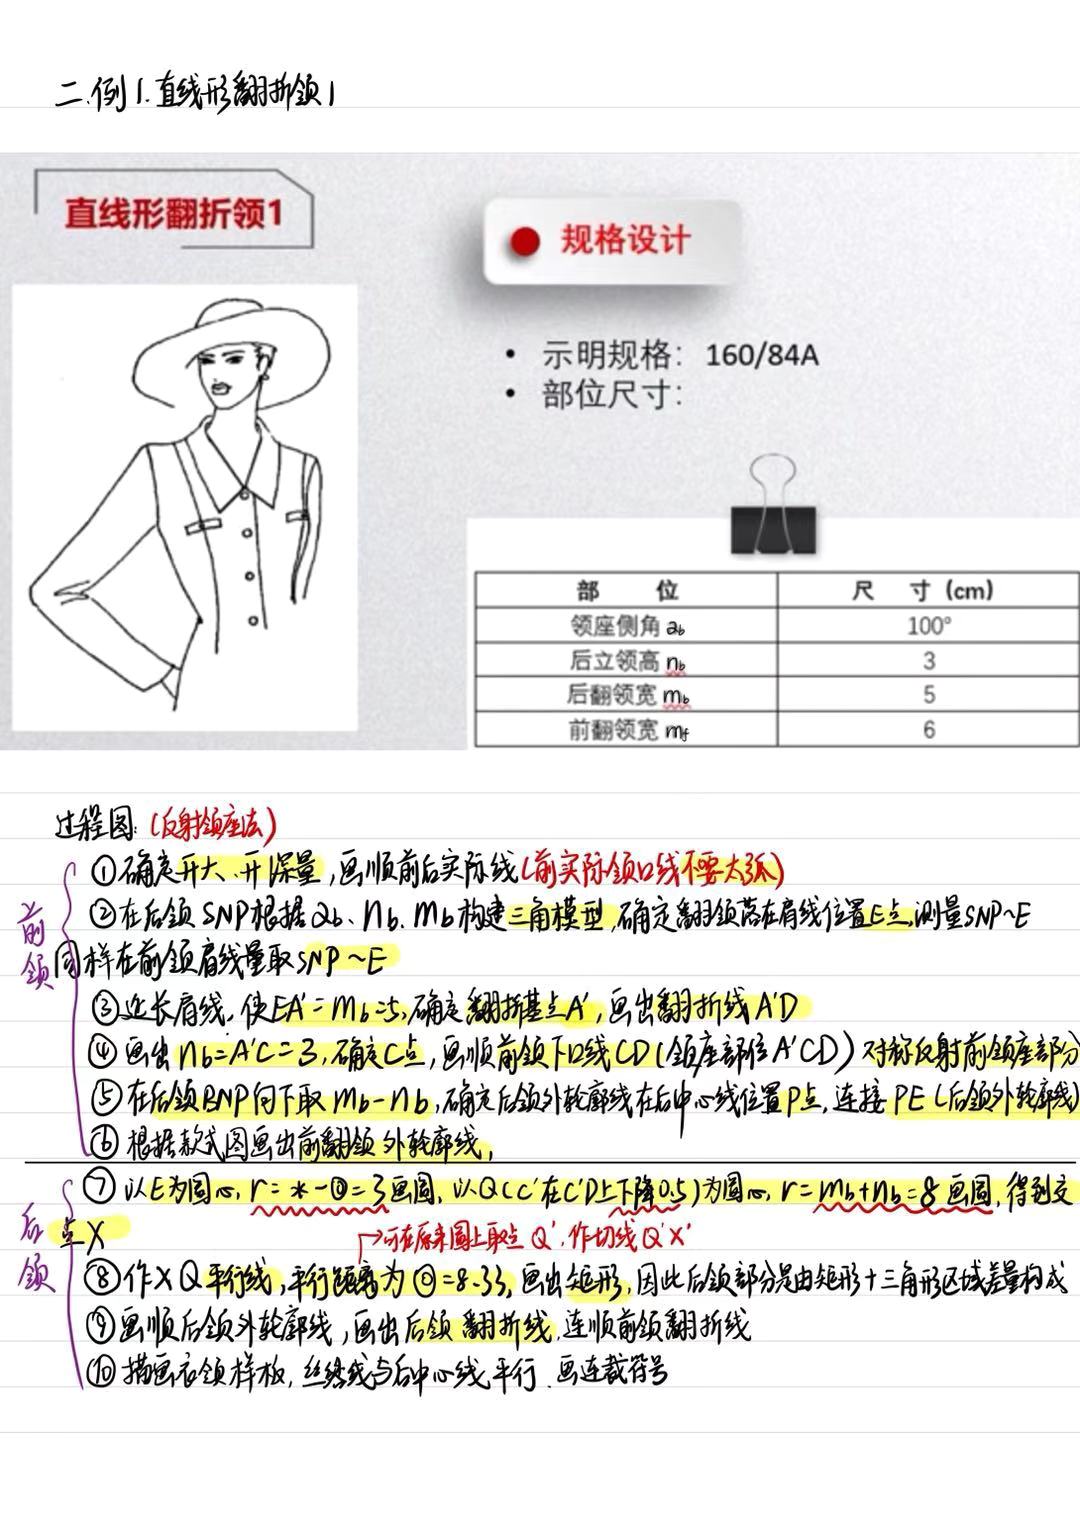 二.例1.直线形翻折领1
直线形翻折领1
规格设计
• 示明规格：160/84A
• 部位尺寸：
部 位 尺 寸（cm）
领座侧角 ab 100°
后立领高 nb 3
后翻领宽 mb 5
前翻领宽 mf 6
过程图:（反射领座法）
前领
①确定开大、开深量,画顺前后实际线（前实际领口线不要太弧）
②在后领SNP根据ab、nb、mb构建三角模型,确定翻领落在肩线位置E点,测量SNP~E
同样在前领肩线量取SNP~E
③延长肩线,使EA'=mb=5,确定翻折基点A',画出翻折线A'D
④画出nb=A'C=3,确定C点,画顺前领下口线CD(领座部位A'CD)对称反射前领座部分
⑤在后领BNP向下取mb-nb,确定后领外轮廓线在后中心线位置P点,连接PE(后领外轮廓线)
⑥根据款式图画出前翻领外轮廓线,
后领
⑦以E为圆心,r=*-◎=3画圆,以Q(C'在C'D上下降0.5)为圆心,r=mb+nb=8画圆,得到交
点X
→可在原来圆上取点Q',作切线Q'X'
⑧作XQ平行线,平行距离为◎=8.33,画出矩形,因此后领部分是由矩形+三角形区域差量构成
⑨画顺后领外轮廓线,画出后领翻折线,连顺前领翻折线
⑩描画衣领样板,丝绺线与后中心线平行.画连裁符号